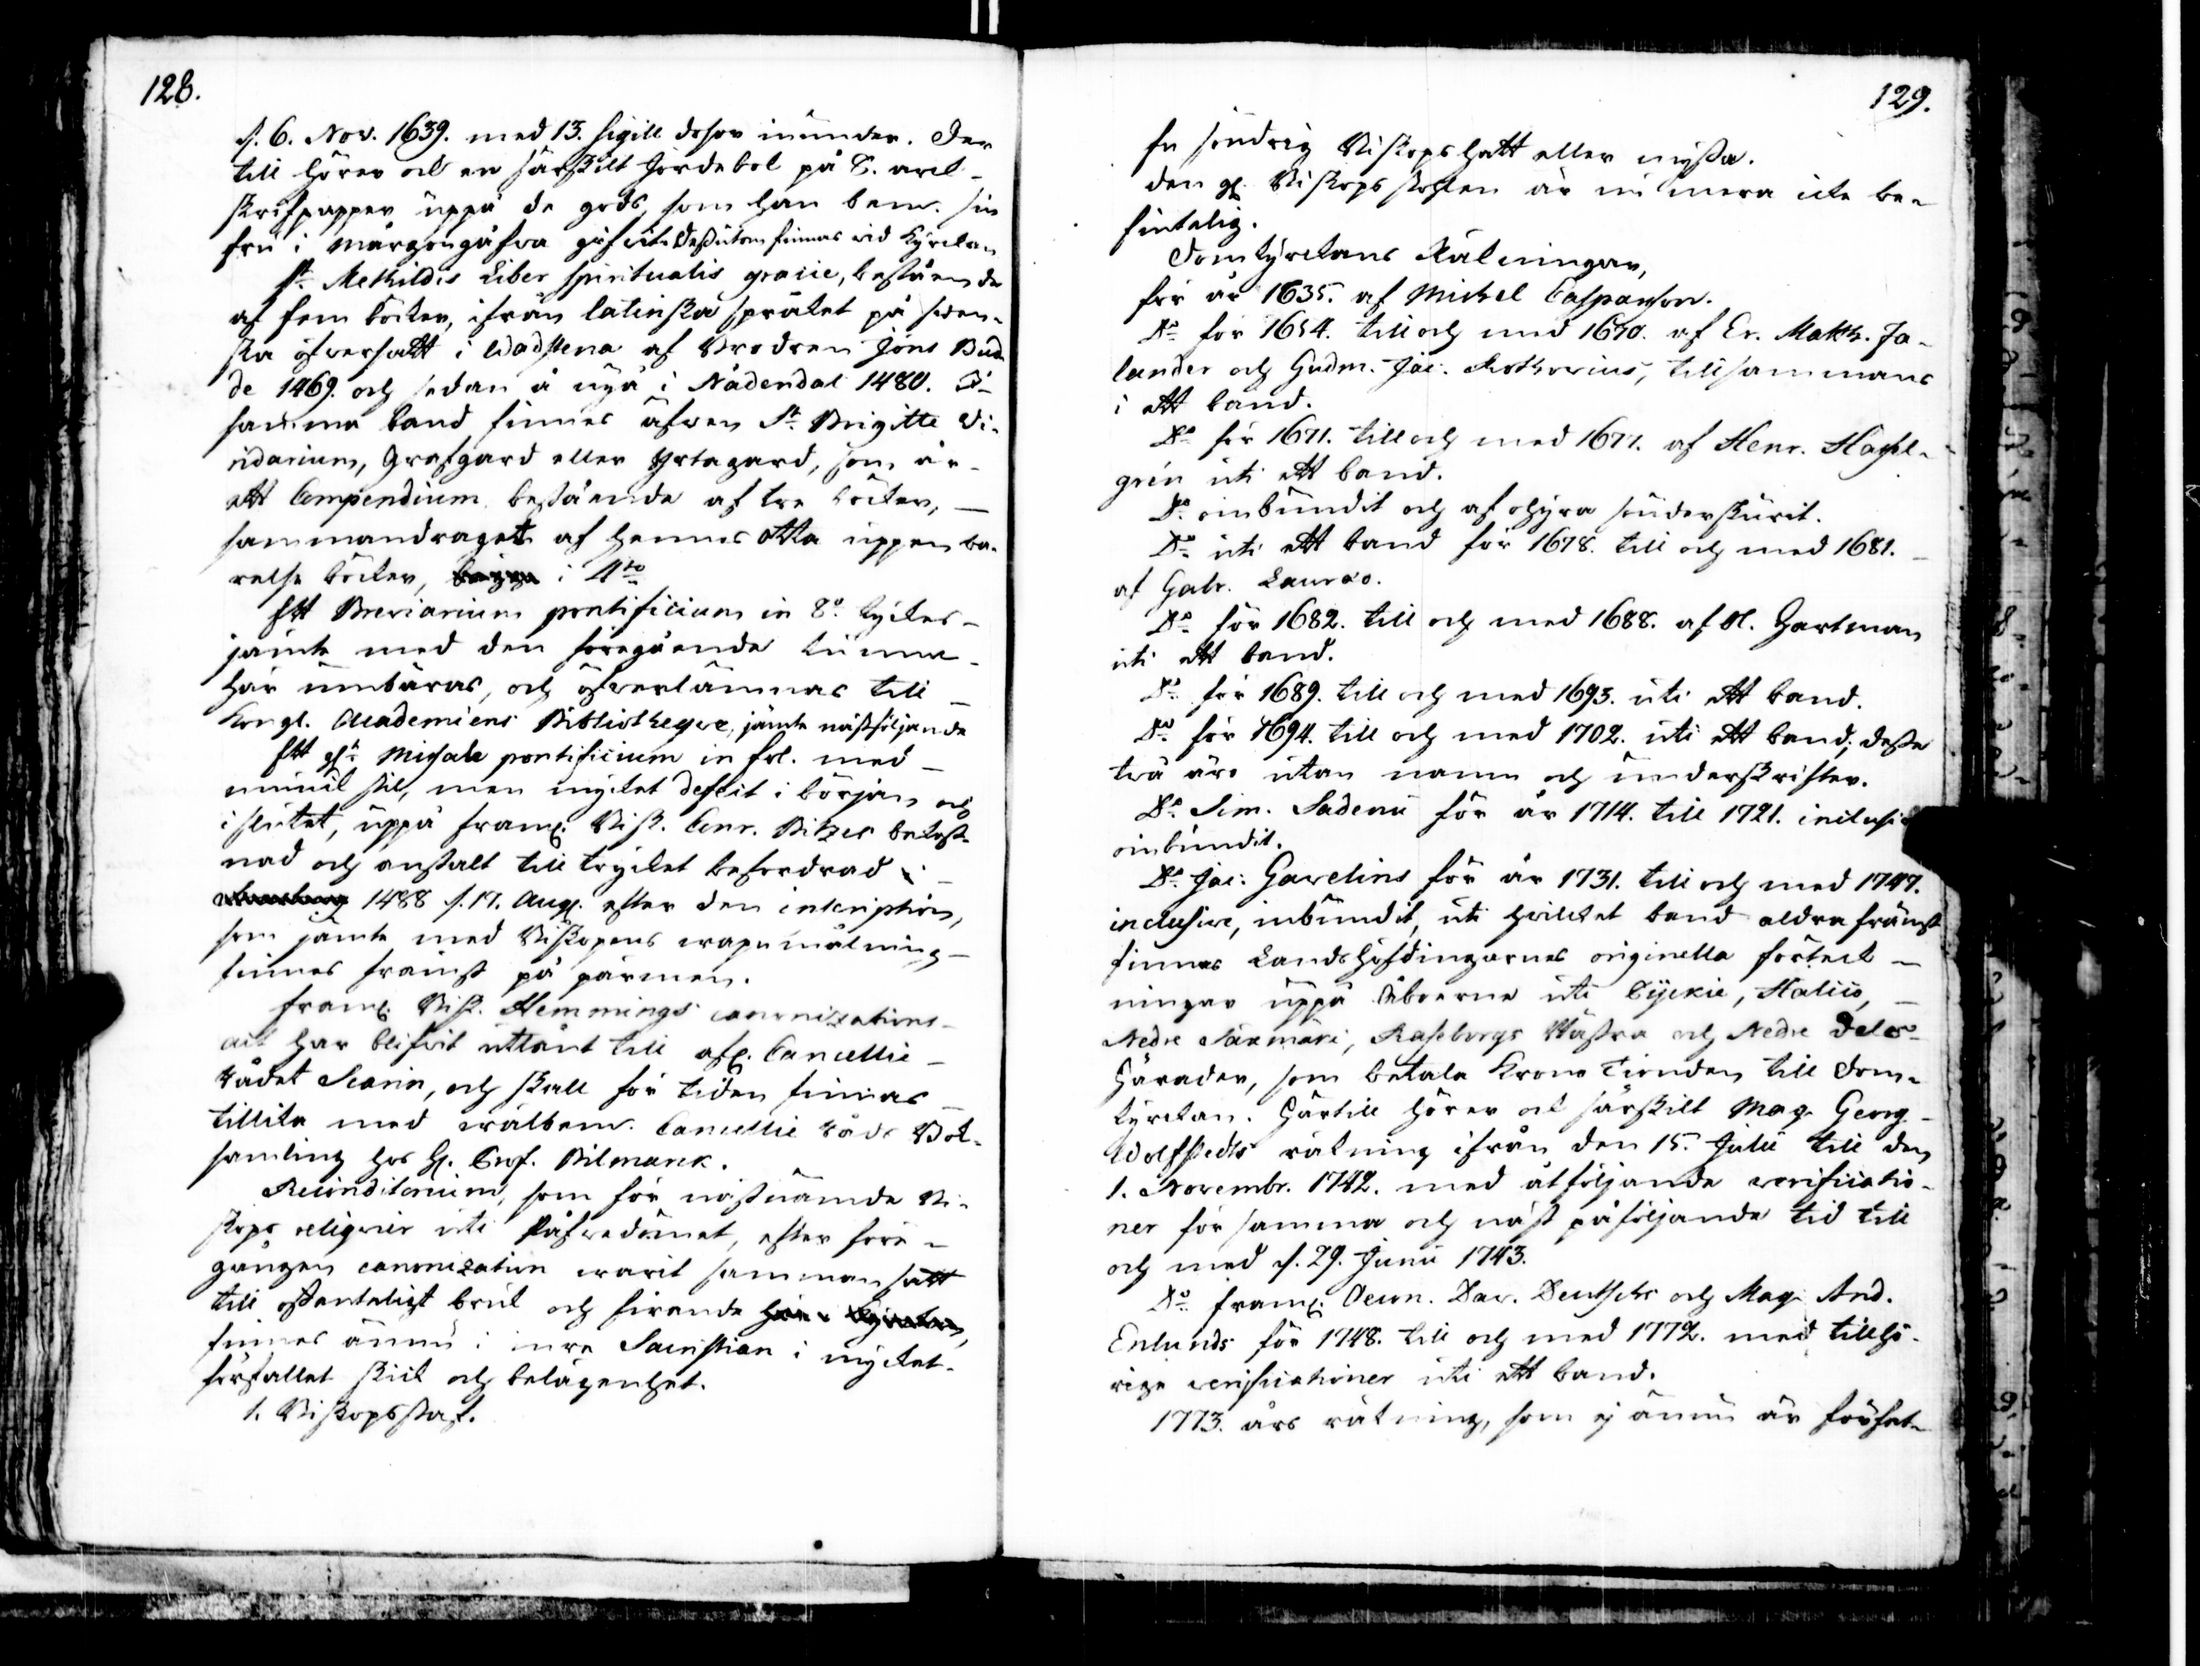 128.
d. 6. Nov. 1639. med 13. sigill derför inunder. Der
till hörer och en särskilt Jordebok på 8. arck
skrifpapper uppå de gods, som han bem. sin
fru i Morgongåfva gifvit. Dessutom finnas vid Kyrckan
St. Methildis Liber spiritualis gracie, bestående
af fem böcker, ifrån latinska språket på sven-
ska öfversatt i Wadstena af Brodren Jöns Bud-
de 1469. och sedan å nyo i Nådendal 1480. I
samma band finnes äfven St. Brigitte Vi-
ridarium, Grafgard eller Yrtagard, som är
ett Compendium bestående af tre böcker,
sammandraget af hennes otta uppenba-
relse böcker, i 4to
Ett Breviarium pontificium in 8o. tyckes
jämte med den föregående kunna
här umbäras, och öfverlämnas till
Kongl. Academiens Bibliotheque, jämte nästföljande
Ett Missale pontificium in fol. med
munck stil, men mycket defect i början och
i slutet, uppå framl. Bisk. Conr. Bitzes bekost-
nad och anstalt till trycket befordrad
1488 d. 17. Aug. efter den inscription,
som jämte med Biskopens vapnmålning
finnes främst på pärmen.
framl. Bisk. Hemmings canonizations
act har blifvit utlånt till afl. Cancellie
Rådet Scarin, och skall för tiden finnas
tillika med välbem. Cancellie Råds Bok-
samling hos H. Prof. Bilmarck.
Reconditorium, som för näst nämde Bi-
skops reliquier uti Påfvedömet, efter före-
gången canonization varit sammansatt
till ostenteligt bruk och firande
finnes ännu i inre Sacristian i mycket
förfallet skick och belägenhet.
1. Biskopsstaf.
129.
En söndrig Biskopshatt eller myssa.
den gl. Biskopsstohlen är nu mera icke be-
fintelig.
Domkyrckans Räkningar,
för år 1635. af Michel Casparson.
Do för 1654. till och med 1670. af Er. Matth. Ja-
lander och Gudm. Jac. Rothovius, tillsammans
i ett band.
Do för 1671. till och med 1677. af Henr. Hassel-
gren uti ett band.
Do oinbundit och af ohyra sönderskurit.
Do uti ett band för 1678. till och med 1681.
af Gabr. Laurœo.
Do för 1682. till och med 1688. af Ol. Hartman
uti ett band.
Do för 1689. till och med 1693. uti ett band.
Do för 1694. till och med 1702. uti ett band. dessa
två äro utan namn och underskrifter.
Do Sim. Sadenii för år 1714. till 1721. inclusi
oinbundit.
Do Jac. Gavelius för år 1731. till och med 1747.
inclusive, inbundit, uti hvilcket band aldra främst
finnes Landshöfdingarnes originella förteck-
ningar uppå Åboerne uti Pijckie, Halico,
Nedre Säxmäki, Raseborgs Västra och Nedre dels
Härader, som betala Krono Tionden till Dom-
kyrckan. Härtill hörer och särskilt Mag. Georg
Wolfstedts räkning ifrån den 15. Julii till den
1. Novembr. 1742. med åtföljande verificatio-
ner för samma och näst påföljande tid till
och med d. 29. Junii 1743.
Do framl. Oecon. Dav. Deutschs och Mag. And.
Enlunds för 1748. till och med 1772. med tillhö-
rige verificationer uti ett band.
1773. års räkning, som ej ännu är förfat-